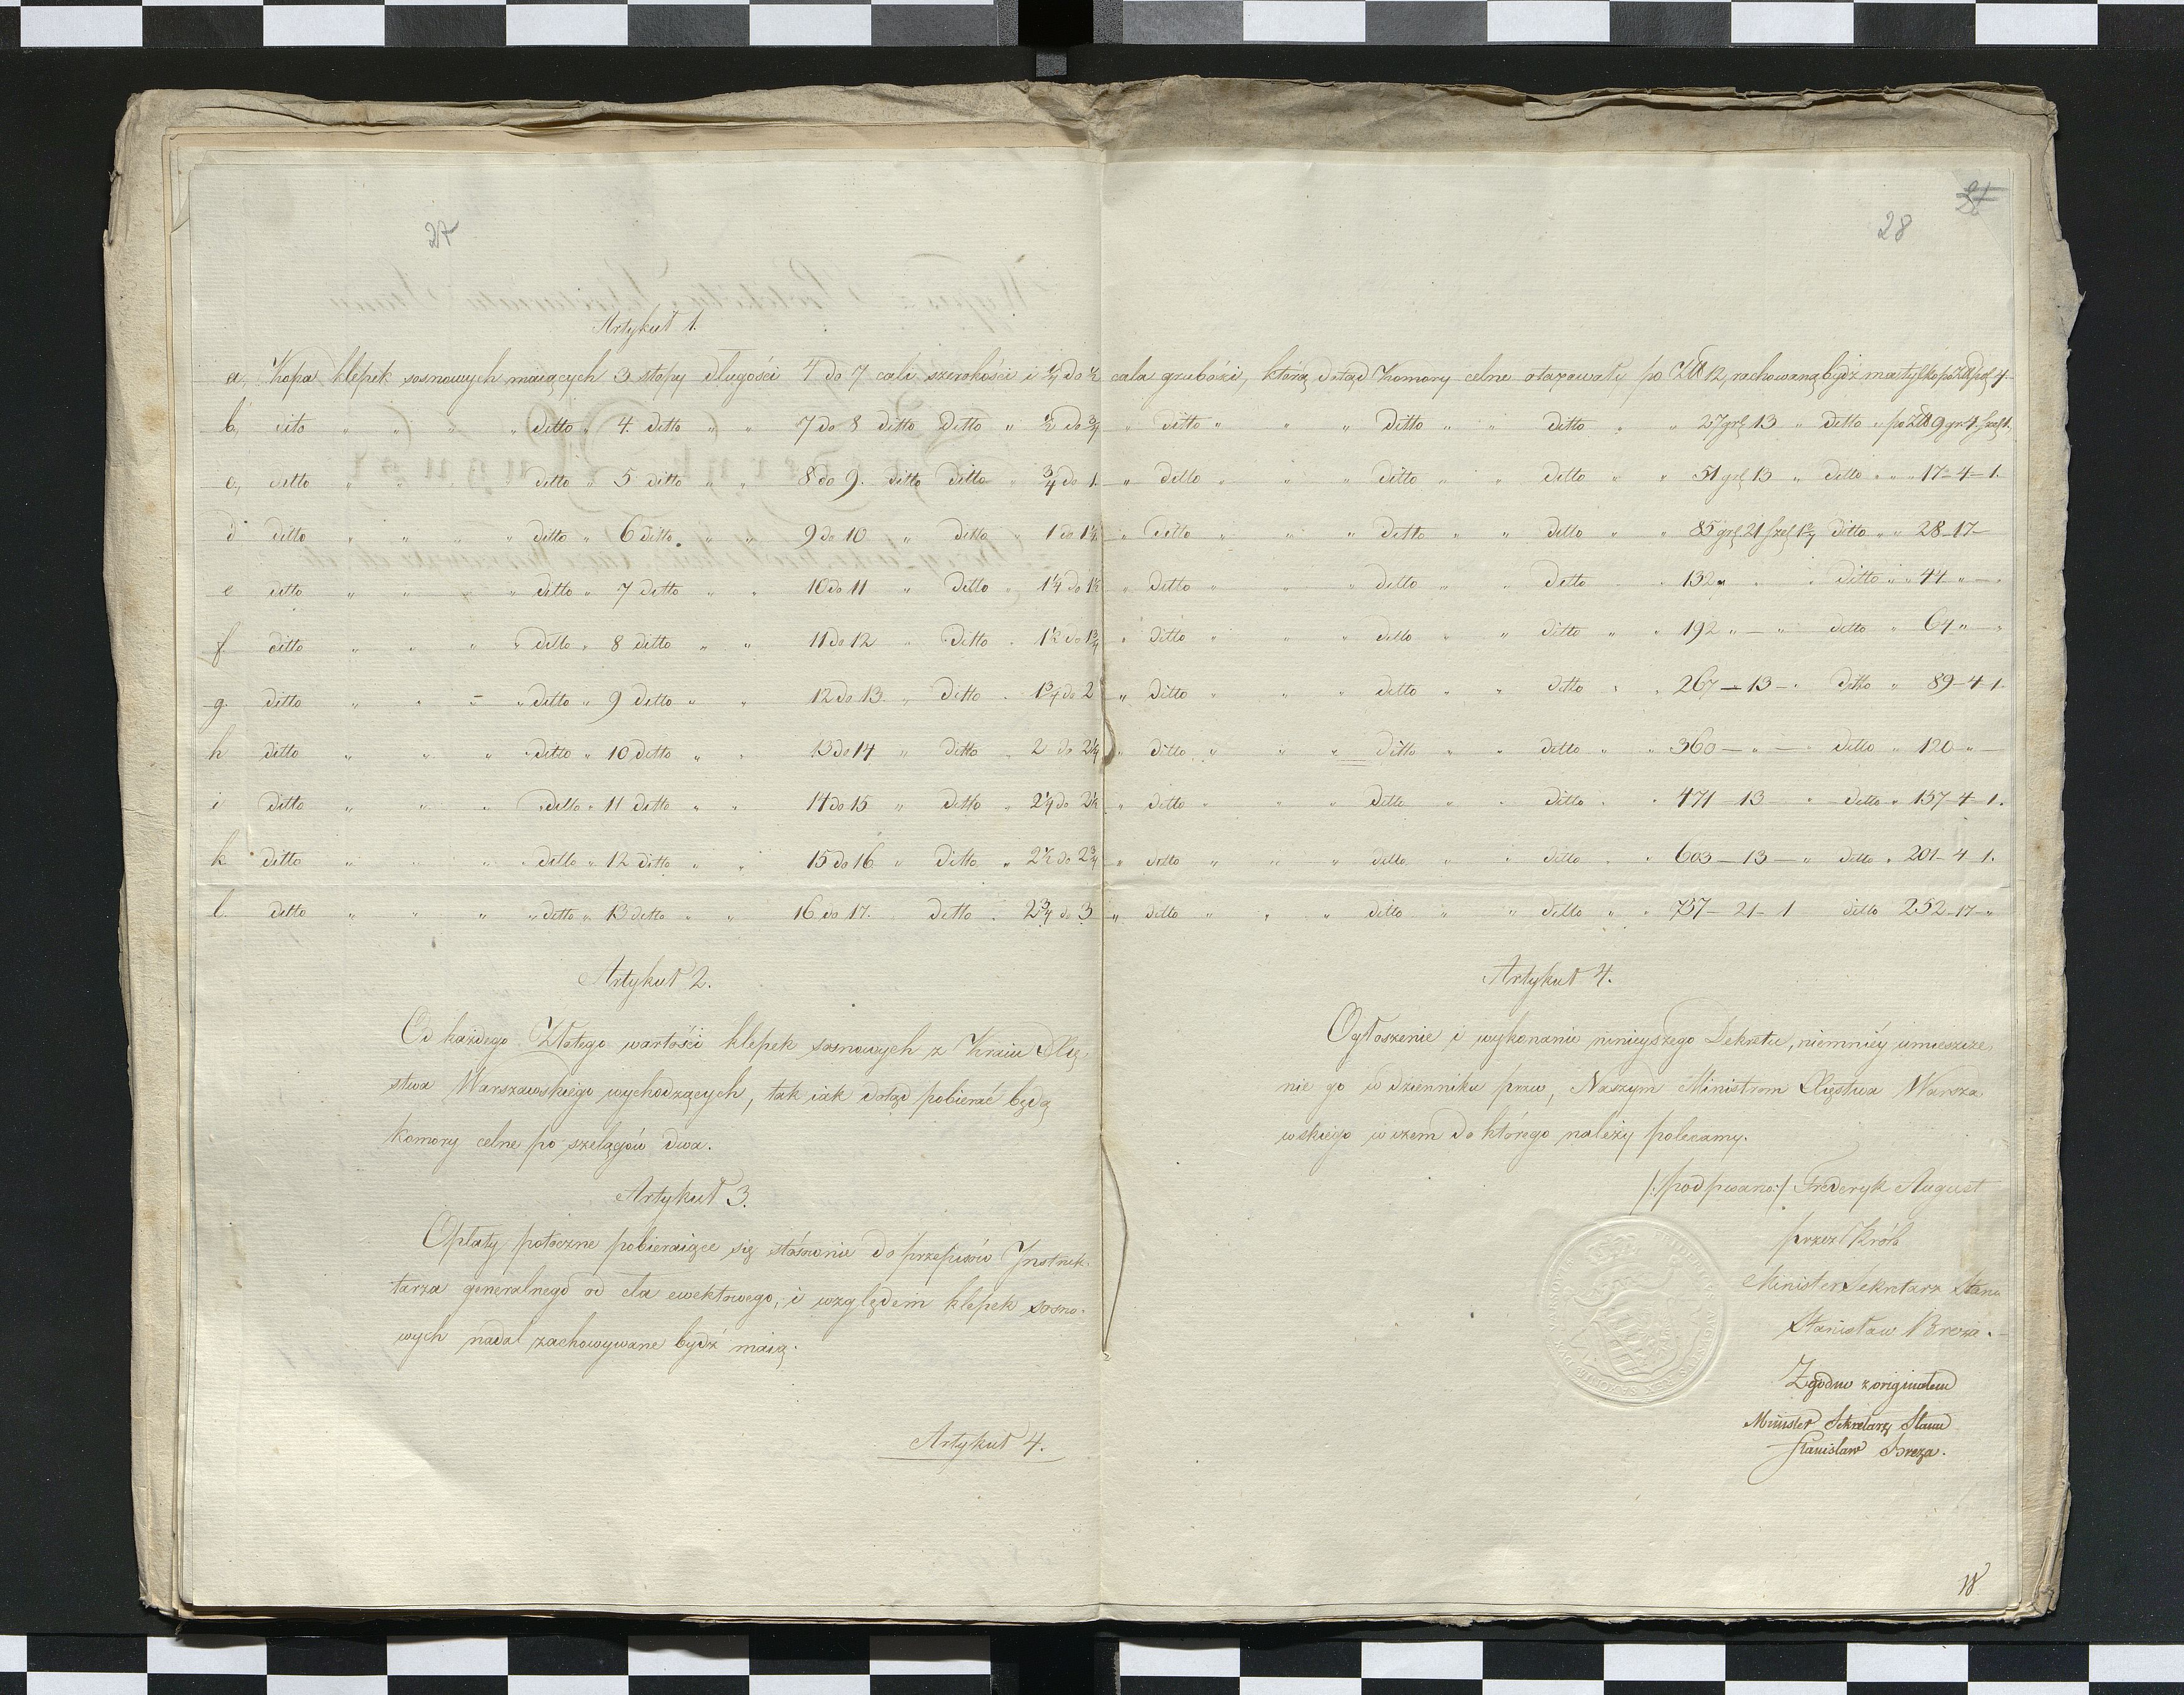 27
28
Artykuł 1.
a, Kopa klepek sosnowych maiących 3 stopy długości 4 do 7 cali szerokości i ¼ do ½ cala grubości, którą dotąd Komory celne otaxowały po Złł 12, rachowaną bydź ma tylko po Złł pol 4
b, dito " " " " ditto " 4. ditto " " 7 do 8 ditto ditto " ½ do ¾ " ditto " " " ditto " " ditto " " 27 gr 13 " ditto " po Złł 9 gr 4. szel 1.
c, ditto " " " " ditto " 5 ditto " " 8 do 9. ditto ditto " ¾ do 1. " ditto " " " ditto " " ditto " " 51 gr 13 " ditto " " " 17-4-1.
d ditto " " " " ditto " 6 ditto " " 9 do 10 " ditto " 1 do 1¼ " ditto " " " ditto " " ditto " " 85 gr 21 szel 1½ ditto " " 28-17-
e ditto " " " " ditto " 7 ditto " " 10 do 11 " ditto " 1¼ do 1½ " ditto " " " ditto " " ditto " " 132 " " " ditto " " 44 " - "
f ditto " " " " ditto " 8 ditto " " 11 do 12 " ditto " 1½ do 1¾ " ditto " " " ditto " " ditto " " 192 " - " ditto " 64 " - "
g. ditto " " " " ditto " 9 ditto " " 12 do 13. " ditto " 1¾ do 2 " ditto " " " ditto " " ditto " " 267-13- " ditto " 89-4-1.
h ditto " " " " ditto " 10 ditto " " 13 do 14 " ditto " 2 do 2¼ " ditto " " " ditto " " ditto " " 360 - " - " ditto " 120 " -
i ditto " " " " ditto " 11 ditto " " 14 do 15 " ditto " 2¼ do 2½ " ditto " " " ditto " " ditto " " 471-13 - " ditto " 157-4-1.
k ditto " " " " ditto " 12 ditto " " 15 do 16 " ditto " 2½ do 2¾ " ditto " " " ditto " " ditto " " 603-13- " ditto " 201-4-1.
l. ditto " " " " ditto " 13 ditto " " 16 do 17. ditto " 2¾ do 3 " ditto " " " ditto " " ditto " " 757-21-1 ditto 252-17-"
Artykuł 2.
Od każdego Złotego wartości klepek sosnowych z Kraiu Xię-
stwa Warszawskiego wychodzących, tak iak dotąd pobierać będą
Komory celne po szelągów dwa.
Artykuł 3.
Opłaty potoczne pobieraiące się stósownie do przepisów Instruk-
tarza generalnego od cła ewektowego, i względem klepek sosno-
wych nadal zachowywane bydź maią.
Artykuł 4.
Artykuł 4.
Ogłoszenie i wykonanie ninieyszego Dekretu, niemniéy umieszcze
nie go w dzienniku praw, Naszym Ministrom Xięstwa Warsza
wskiego w czem do którego należy polecamy.
/:podpisano:/ Frederyk August
przez Króla
Minister Sekretarz Stanu
Stanisław Breza.
Zgodno z originałem
Minister Sekretarz Stanu
Stanisław Breza.
18